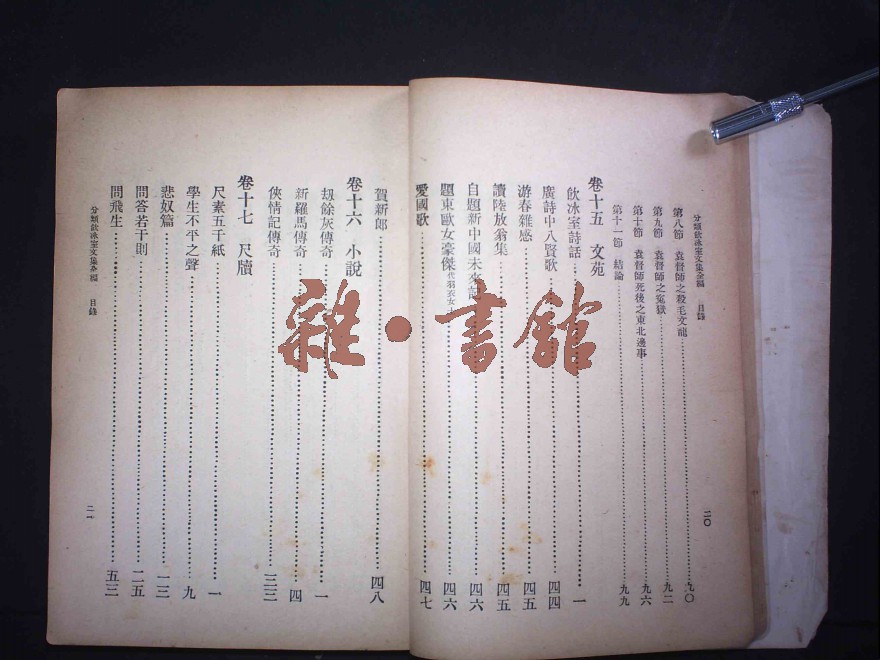 分類飲冰室文集全編　目錄
二〇
第八節　袁督師之殺毛文龍……九〇
第九節　袁督師之寃獄……九二
第十節　袁督師死後之東北邊事……九六
第十一節　結論……九九
卷十五　文苑
飲冰室詩話……一
廣詩中八賢歌……四四
游春雜感……四五
讀陸放翁集……四五
自題新中國未來記……四六
題東歐女豪傑……四六
愛國歌……四七
賀新郎……四八
卷十六　小說
刼餘灰傳奇……一
新羅馬傳奇……四
俠情記傳奇……三三
卷十七　尺牘
尺素五千紙……一
學生不平之聲……九
悲奴篇……一三
問答若干則……二五
問飛生……五三
分類飲冰室文集全編　目錄
二一
雜·書館